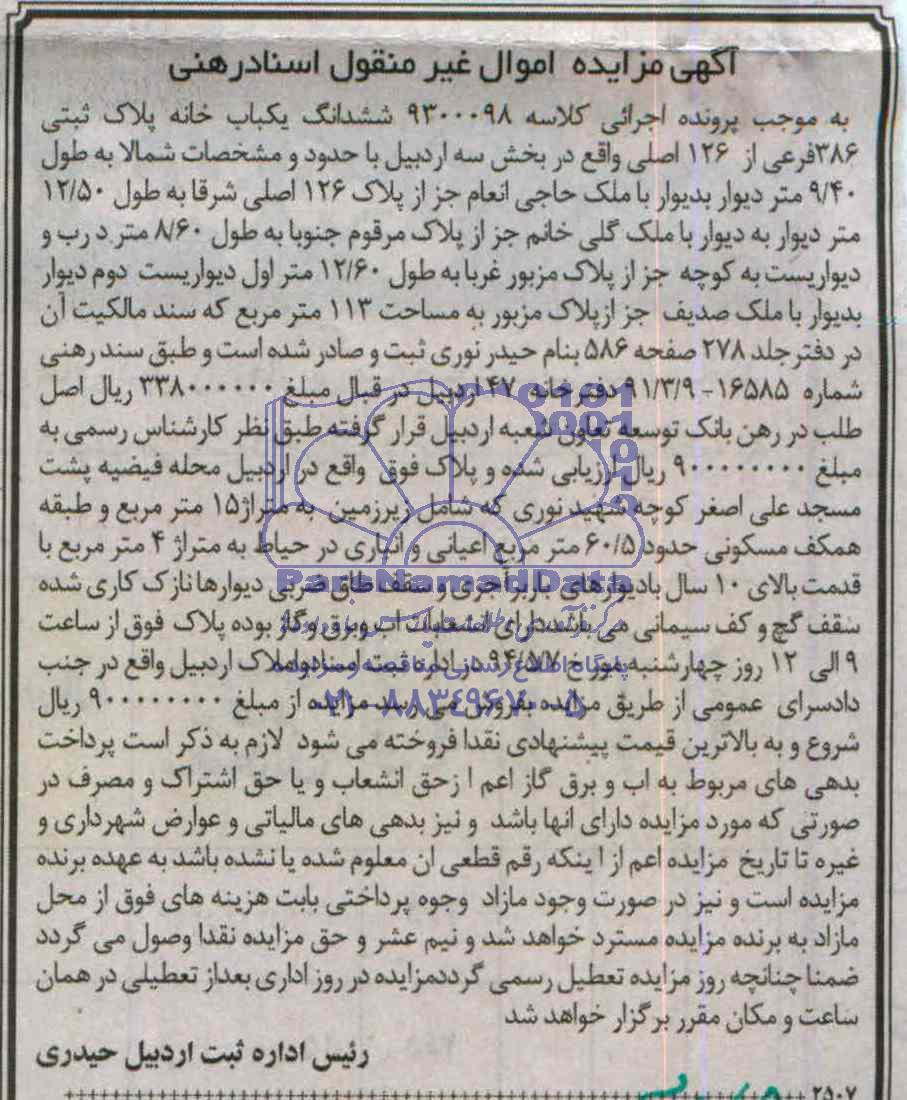 آگهی مزایده اموال غیر منقول اسناد رهنی
به موجب پرونده اجرائی کلاسه ۹۳۰۰۰۹۸ ششدانگ یکباب خانه پلاک ثبتی
۳۸۶فرعی از ۱۲۶ اصلی واقع در بخش سه اردبیل با حدود و مشخصات شمالا به طول
۹/۴۰ متر دیوار بدیوار با ملک حاجی انعام جز از پلاک ۱۲۶ اصلی شرقا به طول ۱۲/۵۰
متر دیوار به دیوار با ملک گلی خانم جز از پلاک مرقوم جنوبا به طول ۸/۶۰ متر درب و
دیواریست به کوچه جز از پلاک مزبور غربا به طول ۱۲/۶۰ متر اول دیواریست دوم دیوار
بدیوار با ملک صدیف جز ازپلاک مزبور به مساحت ۱۱۳ متر مربع که سند مالکیت آن
در دفتر جلد ۲۷۸ صفحه ۵۸۶ بنام حیدر نوری ثبت و صادر شده است و طبق سند رهنی
شماره ۱۶۵۸۵-۹۱/۳/۹ دفترخانه ۴۷ اردبیل در قبال مبلغ ۳۳۸۰۰۰۰۰۰ ریال اصل
طلب در رهن بانک توسعه تعاون شعبه اردبیل قرار گرفته طبق نظر کارشناس رسمی به
مبلغ ۹۰۰۰۰۰۰۰۰ ریال ارزیابی شده و پلاک فوق واقع در اردبیل محله فیضیه پشت
مسجد علی اصغر کوچه شهید نوری که شامل زیرزمین به متراژ۱۵ متر مربع و طبقه
همکف مسکونی حدود ۶۰/۵ متر مربع اعیانی و انباری در حیاط به متراژ ۴ متر مربع با
قدمت بالای ۱۰ سال بادیوارهای باربر آجری و سقف طاق ضربی دیوارها نازک کاری شده
سقف گچ و کف سیمانی می باشددارای انشعابات اب وبرق و گاز بوده پلاک فوق از ساعت
۹ الی ۱۲ روز چهارشنبه مورخ ۹۴/۵/۷ در اداره ثبت اسنادواملاک اردبیل واقع در جنب
دادسرای عمومی از طریق مزایده بفروش می رسد مزایده از مبلغ ۹۰۰۰۰۰۰۰۰ ریال
شروع و به بالاترین قیمت پیشنهادی نقدا فروخته می شود لازم به ذکر است پرداخت
بدهی های مربوط به اب و برق گاز اعم ا زحق انشعاب و یا حق اشتراک و مصرف در
صورتی که مورد مزایده دارای انها باشد و نیز بدهی های مالیاتی و عوارض شهرداری و
غیره تا تاریخ مزایده اعم از ا ینکه رقم قطعی ان معلوم شده یا نشده باشد به عهده برنده
مزایده است و نیز در صورت وجود مازاد وجوه پرداختی بابت هزینه های فوق از محل
مازاد به برنده مزایده مسترد خواهد شد و نیم عشر و حق مزایده نقدا وصول می گردد
ضمنا چنانچه روز مزایده تعطیل رسمی گرددمزایده در روز اداری بعداز تعطیلی در همان
ساعت و مکان مقرر برگزار خواهد شد
رئیس اداره ثبت اردبیل حیدری
۲۵۰۷
ParsNamadData
۰۲۱-۸۸۳۴۹۶۷۰-۵